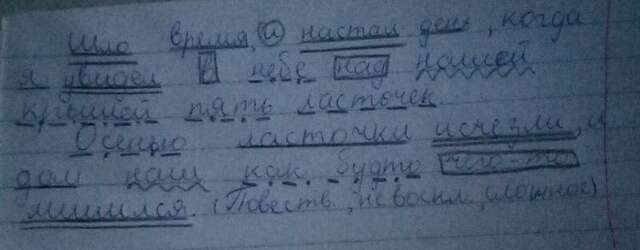 Шло время, и настал день, когда
я увидел в небе над нашей
крышей пять ласточек
Осенью ласточки исчезли, и
дом наш как будто чего-то
лишился. (Повеств., невоскл., сложное)